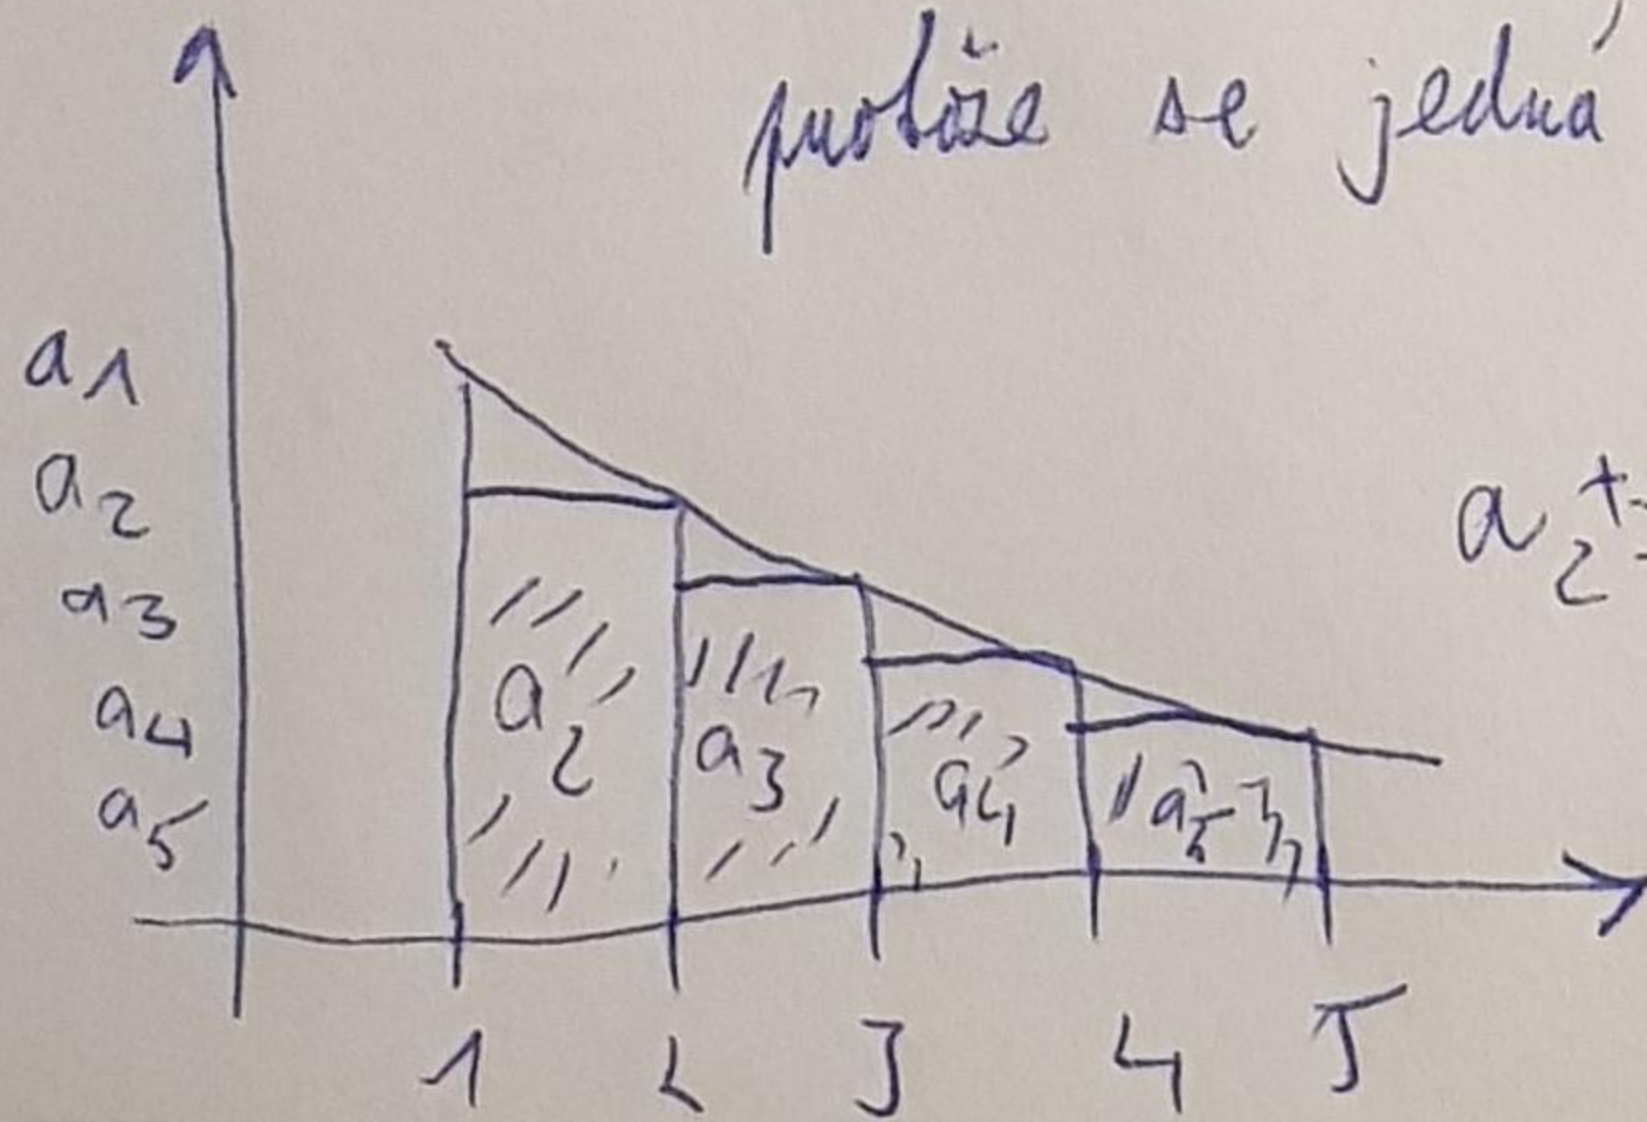 protože se jedná
a1
a2
a3
a4
a5
a2 a3 a4 a5
a2+
1 2 3 4 5